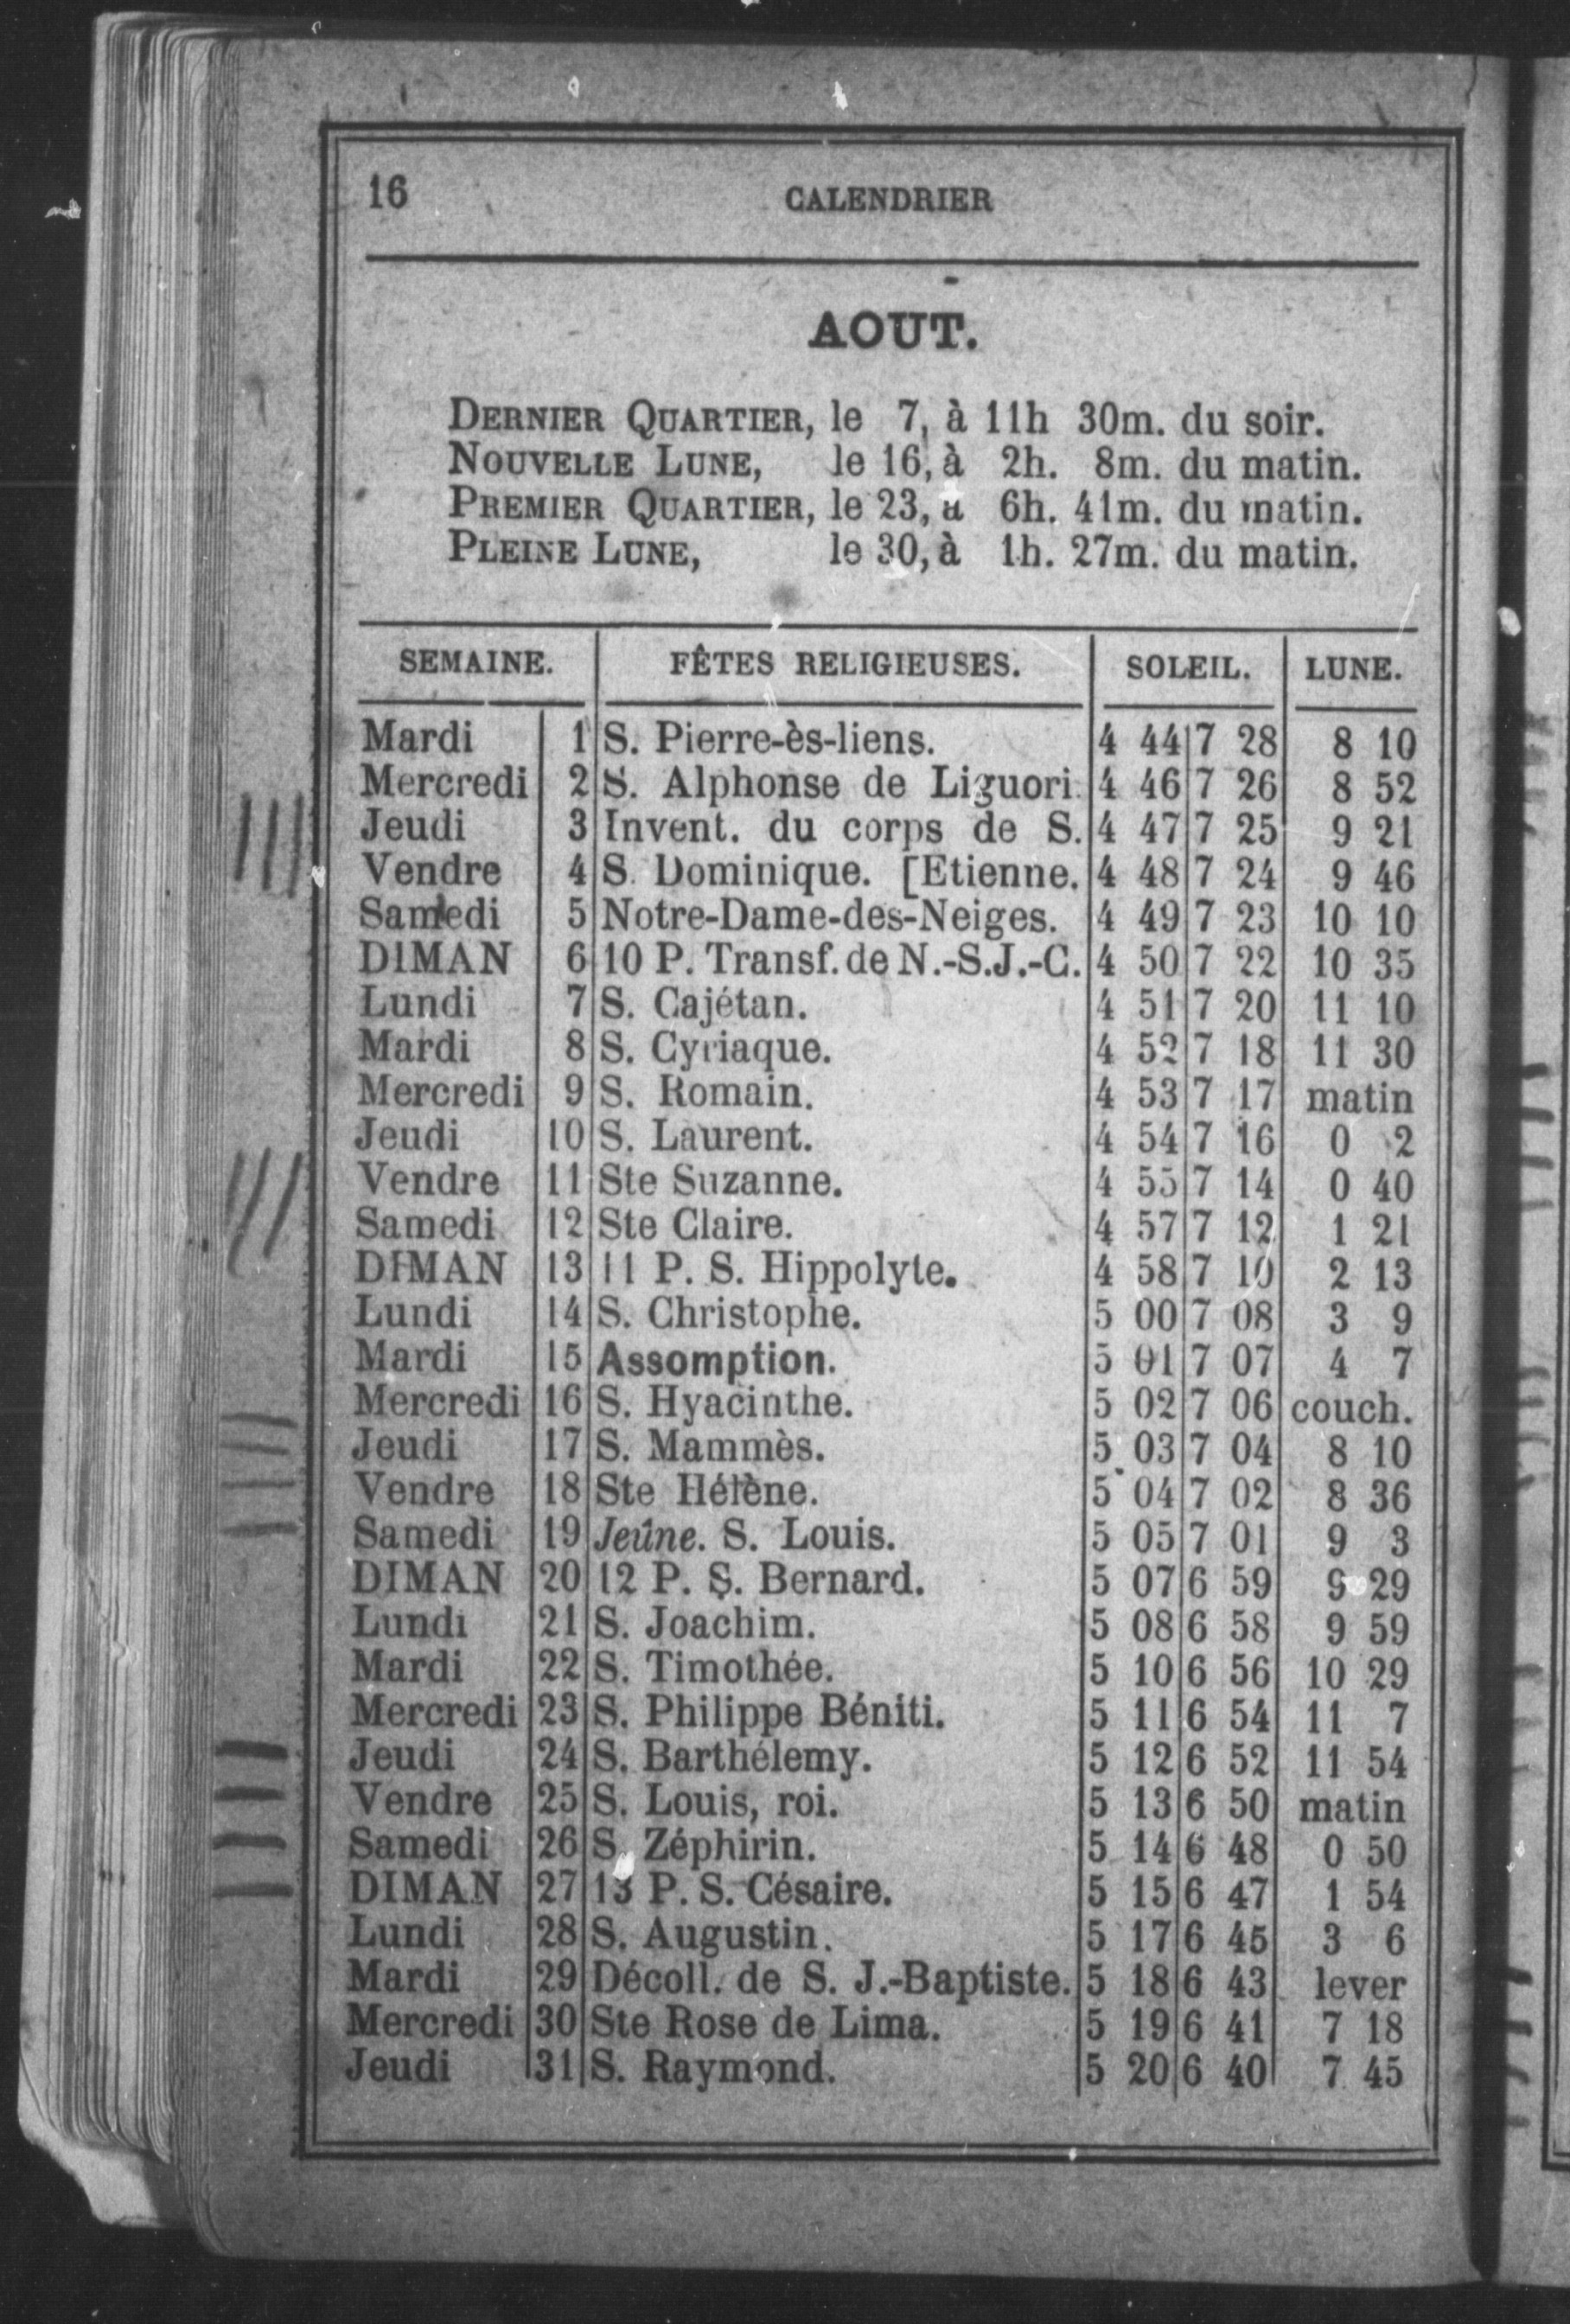 16 CALENDRIER
AOUT.
DERNIER QUARTIER, le 7, à 11h 30m. du soir.
NOUVELLE LUNE, le 16, à 2h. 8m. du matin.
PREMIER QUARTIER, le 23, à 6h. 41m. du matin.
PLEINE LUNE, le 30, à 1h. 27m. du matin.
SEMAINE. FÊTES RELIGIEUSES. SOLEIL. LUNE.
Mardi 1 S. Pierre-ès-liens. 4 44 7 28 8 10
Mercredi 2 S. Alphonse de Liguori. 4 46 7 26 8 52
Jeudi 3 Invent. du corps de S. 4 47 7 25 9 21
Vendre 4 S. Dominique. [Etienne. 4 48 7 24 9 46
Samedi 5 Notre-Dame-des-Neiges. 4 49 7 23 10 10
DIMAN 6 10 P. Transf. de N.-S.J.-C. 4 50 7 22 10 35
Lundi 7 S. Cajétan. 4 51 7 20 11 10
Mardi 8 S. Cyriaque. 4 52 7 18 11 30
Mercredi 9 S. Romain. 4 53 7 17 matin
Jeudi 10 S. Laurent. 4 54 7 16 0 2
Vendre 11 Ste Suzanne. 4 55 7 14 0 40
Samedi 12 Ste Claire. 4 57 7 12 1 21
DIMAN 13 11 P. S. Hippolyte. 4 58 7 10 2 13
Lundi 14 S. Christophe. 5 00 7 08 3 9
Mardi 15 Assomption. 5 01 7 07 4 7
Mercredi 16 S. Hyacinthe. 5 02 7 06 couch.
Jeudi 17 S. Mammès. 5 03 7 04 8 10
Vendre 18 Ste Hélène. 5 04 7 02 8 36
Samedi 19 Jeûne. S. Louis. 5 05 7 01 9 3
DIMAN 20 12 P. S. Bernard. 5 07 6 59 9 29
Lundi 21 S. Joachim. 5 08 6 58 9 59
Mardi 22 S. Timothée. 5 10 6 56 10 29
Mercredi 23 S. Philippe Béniti. 5 11 6 54 11 7
Jeudi 24 S. Barthélemy. 5 12 6 52 11 54
Vendre 25 S. Louis, roi. 5 13 6 50 matin
Samedi 26 S. Zéphirin. 5 14 6 48 0 50
DIMAN 27 13 P. S. Césaire. 5 15 6 47 1 54
Lundi 28 S. Augustin. 5 17 6 45 3 6
Mardi 29 Décoll. de S. J.-Baptiste. 5 18 6 43 lever
Mercredi 30 Ste Rose de Lima. 5 19 6 41 7 18
Jeudi 31 S. Raymond. 5 20 6 40 7 45